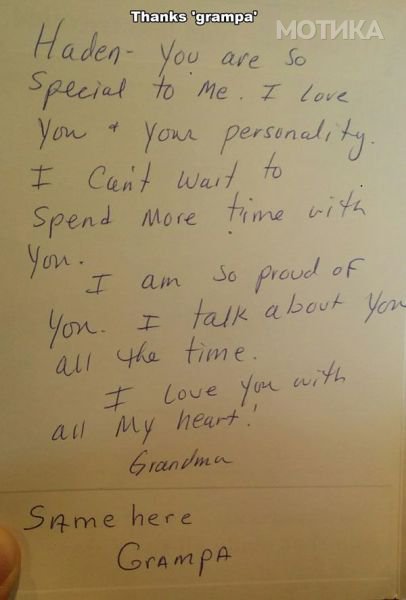 Thanks 'grampa'
МОТИКА
Haden- You are so
Special to Me. I Love
You + Your personality.
I Can't Wait to
Spend More time with
You.
I am so proud of
You. I talk about You
all the time.
I Love You with
all My heart!
Grandma
SAme here
GrAmpA